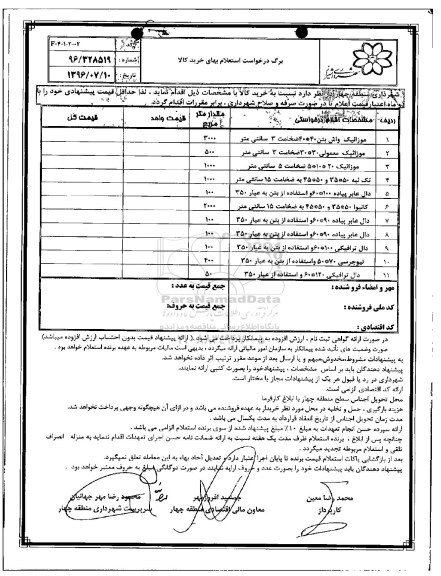 برگ درخواست استعلام بهای خرید کالا
F-۶۰۱-۲-۰۲
شماره : ۹۶/۳۲۸۵۱۹
تاریخ : ۱۳۹۶/۰۷/۱۰
شهرداری منطقه چهار در نظر دارد نسبت به خرید کالا با مشخصات ذیل اقدام نماید ، لذا حداقل قیمت پیشنهادی خود را با
ماه اعتبار قیمت اعلام تا در صورت صرفه و صلاح شهرداری ، برابر مقررات اقدام گردد
ردیف مشخصات اقلام درخواستی مقدار متر مربع قیمت واحد قیمت کل
۱ موزائیک واش بتن ۴۰*۴۰ ضخامت ۳ سانتی متر ۳۰۰۰
۲ موزائیک معمولی ۳۰*۳۰ ضخامت ۳ سانتی متر ۵۰۰
۳ موزائیک ۲۰*۱۰*۵ ضخامت ۵ سانتی متر ۱۰۰۰
۴ تک لبه ۵۰*۳۵ و ۵۰*۴۵ به ضخامت ۱۵ سانتی متر ۱۰۰۰
۵ دال عابر پیاده ۱۰۰*۶۰ و استفاده از بتن به عیار ۳۵۰ ۱۰۰
۶ کانیوا ۵۰*۳۵ و ۵۰*۴۵ به ضخامت ۱۵ سانتی متر ۲۰۰۰
۷ دال عابر پیاده ۹۰*۶۰ و استفاده از بتن به عیار ۳۵۰ ۱۰۰
۸ دال عابر پیاده ۹۰*۶۰ و استفاده از بتن به عیار ۳۵۰ ۱۰۰
۹ دال ترافیکی ۱۰۰*۶۰ و استفاده از بتن به عیار ۳۵۰ ۱۰۰
۱۰ نیوجرسی ۷۰*۵۰ و استفاده از بتن به عیار ۳۵۰ ۴۰۰
۱۱ دال ترافیکی ۱۲۰*۶۰ و استفاده از عیار ۳۵۰ ۵۰
مهر و امضاء فروشنده : جمع قیمت به عدد :
کد ملی فروشنده : جمع قیمت به حروف:
کد اقتصادی :
ParsNamadData
پایگاه اطلاع رسانی مناقصه و مزایده
در صورت ارائه گواهی ثبت نام ، ارزش افزوده به پیمانکار پرداخت می شود . ( ارائه پیشنهاد قیمت بدون احتساب ارزش افزوده میباشد)
صورت وضعیت های تأیید شده پیمانکار به سازمان امور مالیاتی ارائه میگردد ، بدیهی است مالیات مربوطه به عهده برنده استعلام خواهد بود .
به پیشنهادات مشروط،مخدوش،مبهم و یا ارسال بعد از موعد مقرر ترتیب اثر داده نخواهد شد.
پیشنهاد دهندگان باید بر اساس مشخصات ، پیشنهاد خود را بصورت کتبی ارائه نمایند.
شهرداری در رد یا قبول هر یک از پیشنهادات مجاز یا مختار است.
ارائه کد اقتصادی الزامی است.
محل تحویل اجناس سطح منطقه چهار با ابلاغ کارفرما
هزینه بارگیری ، حمل و تخلیه در محل مورد نظر خریدار به عهده فروشنده می باشد و در ازای آن هیچگونه وجهی پرداخت نخواهد شد.
مدت زمان تحویل اجناس از تاریخ انعقاد قرارداد به مدت یکسال می باشد .
ارائه سپرده حسن انجام تعهدات به مبلغ ۱۰٪ مبلغ پیشنهاد شده از سوی برنده استعلام الزامی می باشد .
چنانچه پس از ابلاغ ، برنده استعلام ظرف مدت یک هفته نسبت به ارائه ضمانت نامه حسن اجرای تعهدات اقدام ننماید به منزله انصراف
تلقی و استعلام مربوطه تجدید میگردد .
بعد از بازگشایی پاکات استعلام قیمت برنده تا پایان اجرا اعتبار دارد و تعدیل آحاد بهاء به این معامله تعلق نمیگیرد.
پیشنهاد دهندگان باید پیشنهادات خود را بصورت عدد و حروف ارایه نمایند در صورت دوگانگی مبلغ به حروف معتبر خواهد بود .
محمد رضا معین جمشید افروزمهر محمود رضا مهر جهانیان
کارپرداز معاون مالی اقتصادی منطقه چهار سرپرست شهرداری منطقه چهار